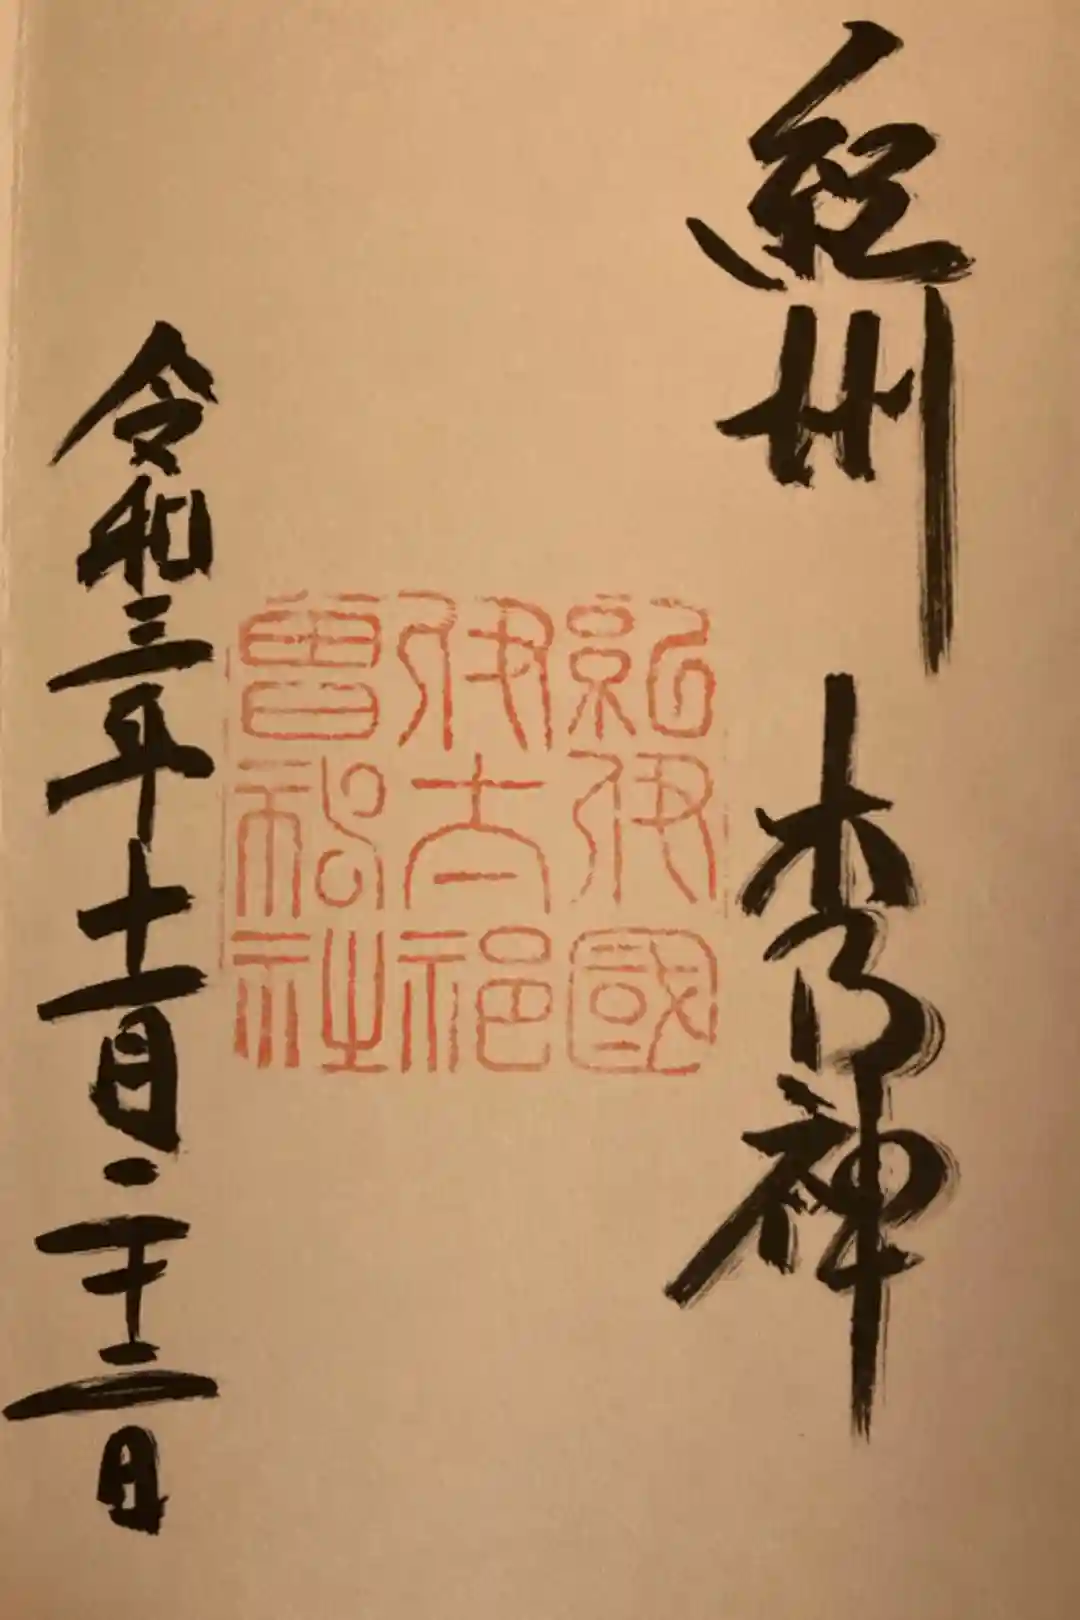 紀州 木の神
紀伊國
伊太祁
曾神社
令和三年十一月二十二日